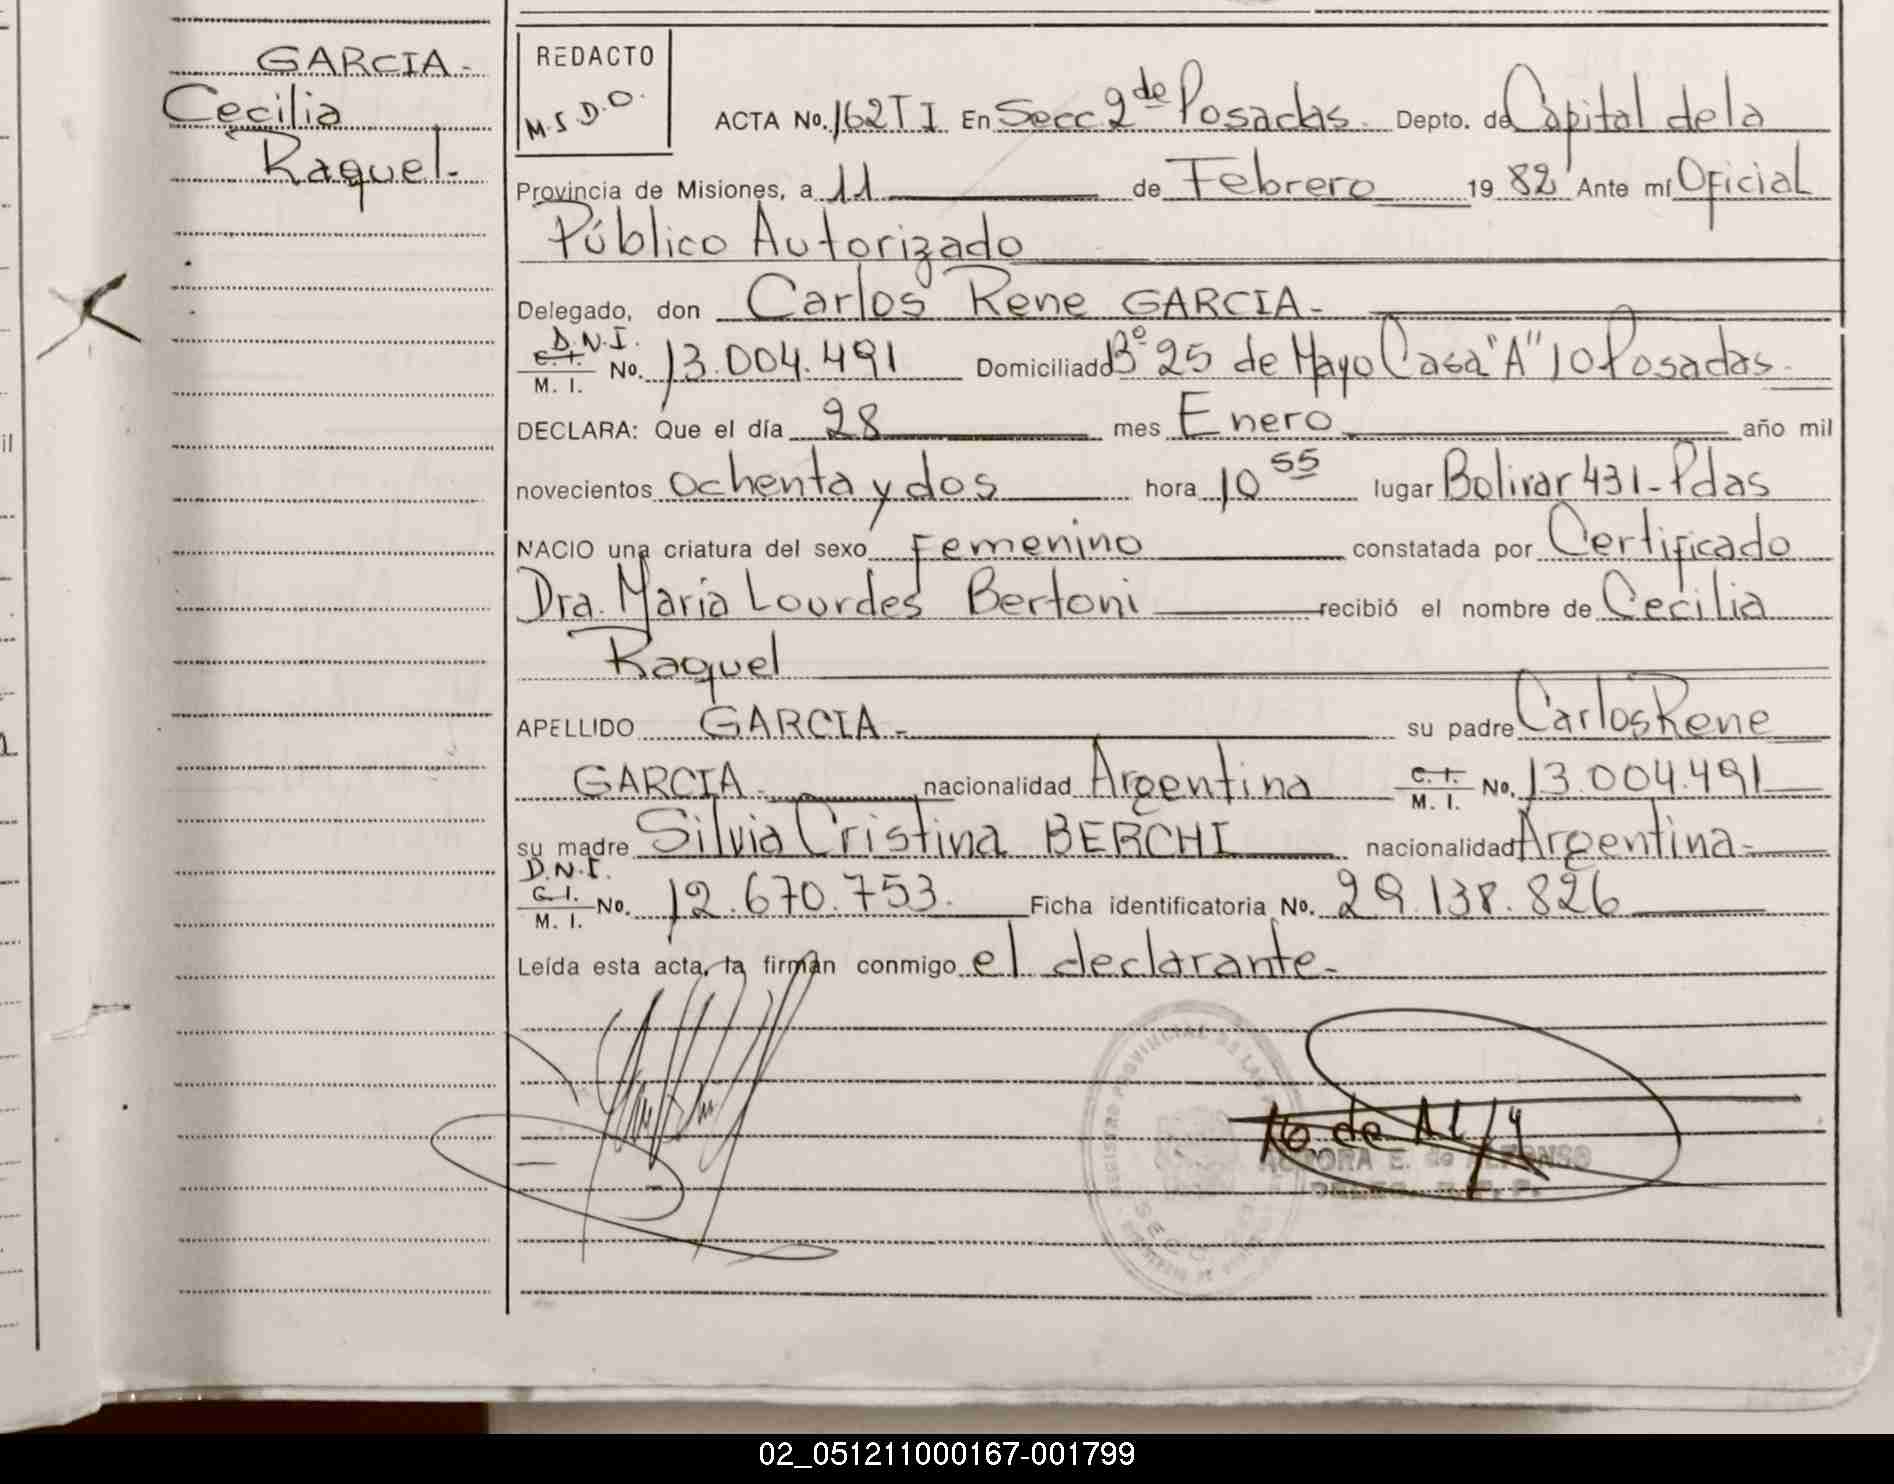 GARCIA-
Cecilia
Raquel-
REDACTO
M.S.D.O.
ACTA No. 162 T I En Secc 2da de Posadas. Depto. de Capital de la
Provincia de Misiones, a 11 de Febrero 19 82 Ante mí Oficial
Público Autorizado
Delegado, don Carlos Rene GARCIA-
D.N.I.
C.I.
M. I. No. 13.004.491 Domiciliado Bº 25 de Mayo Casa "A" 10 Posadas-
DECLARA: Que el día 28 mes Enero año mil
novecientos ochenta y dos hora 10 55 lugar Bolivar 431-Pdas
NACIO una criatura del sexo Femenino constatada por Certificado
Dra. María Lourdes Bertoni recibió el nombre de Cecilia
Raquel
APELLIDO GARCIA- su padre Carlos Rene
GARCIA- nacionalidad Argentina C.I. M. I. No. 13.004.491
su madre Silvia Cristina BERCHI nacionalidad Argentina-
D.N.I.
C.I.
M. I. No. 12.670.753. Ficha identificatoria No. 29.138.826
Leída esta acta, la firman conmigo el declarante-
REGISTRO PROVINCIAL DE LAS
16 de 11/4
E. de ALFONSO
02_051211000167-001799